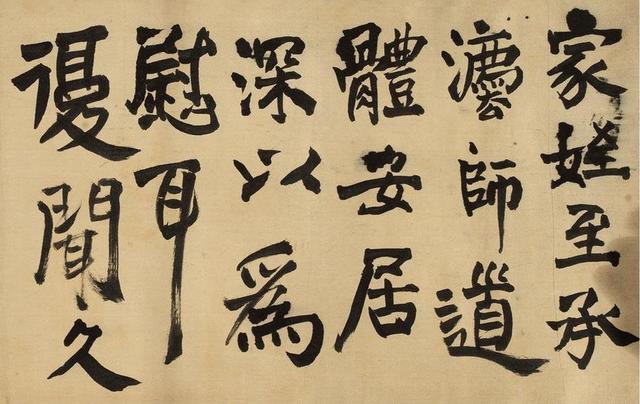 家姪至承
灋師道
體安居
深以爲
慰耳
復聞久